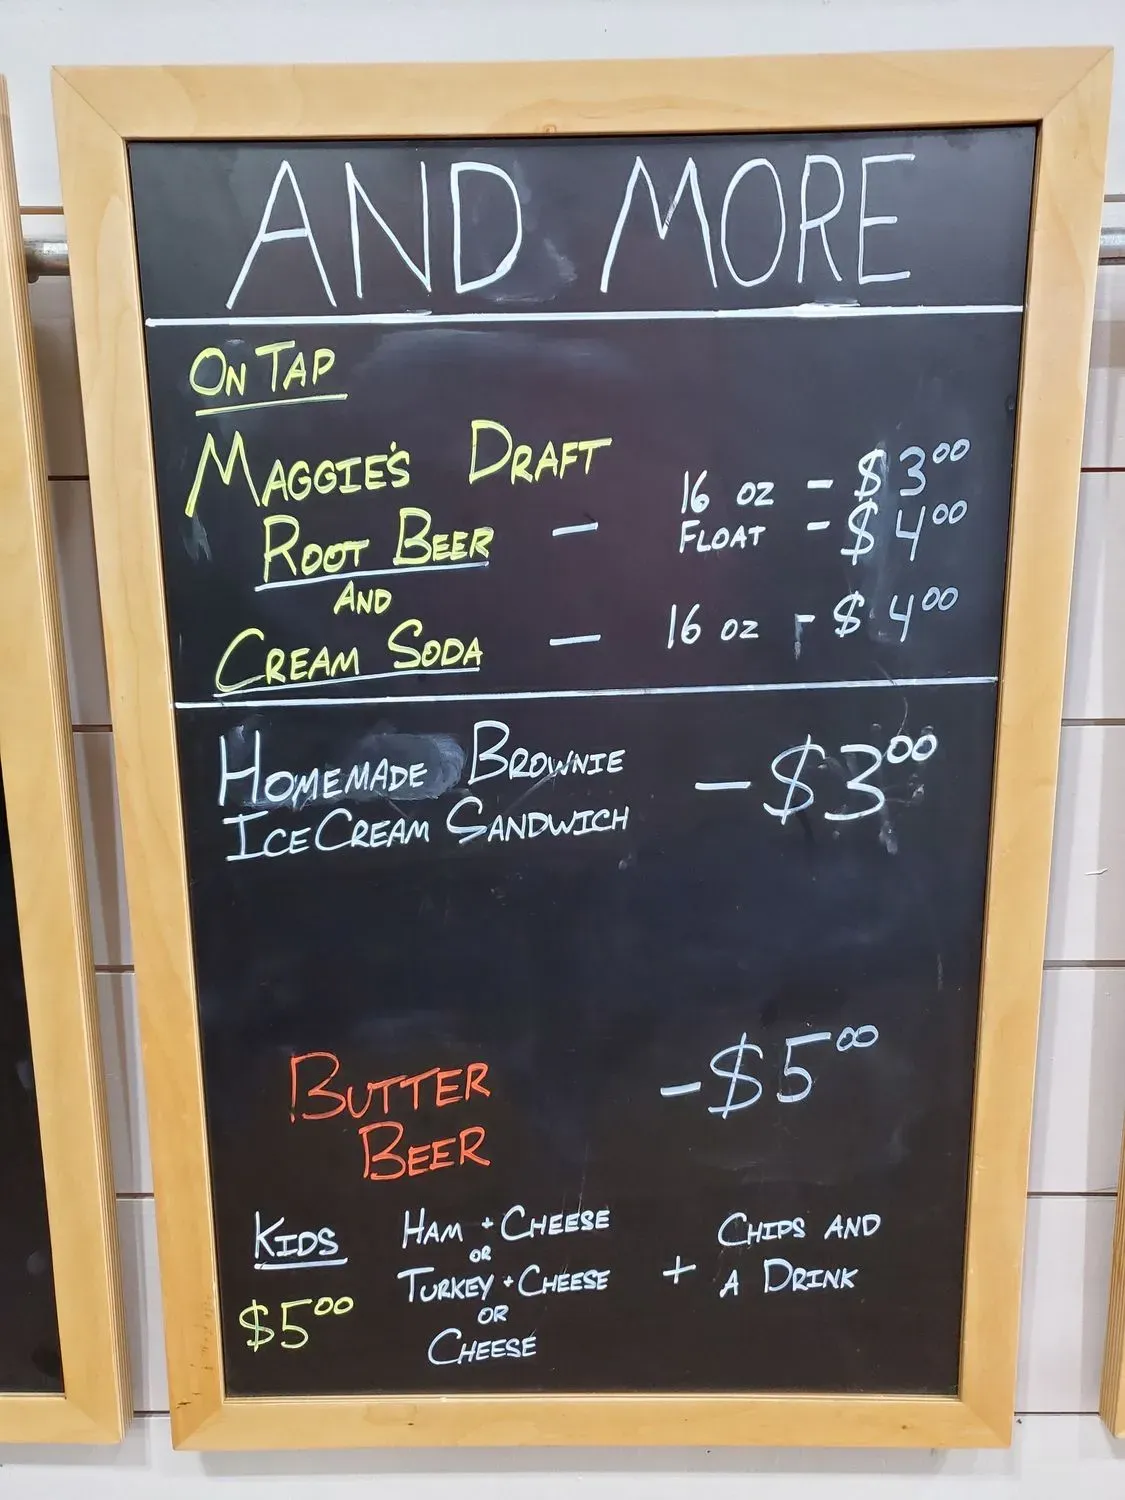 AND MORE
ON TAP
MAGGIE'S DRAFT
16 OZ - $3.00
ROOT BEER —
FLOAT - $4.00
AND
CREAM SODA — 16 OZ - $4.00
HOMEMADE BROWNIE - $3.00
ICE CREAM SANDWICH
BUTTER - $5.00
BEER
KIDS HAM + CHEESE + CHIPS AND
OR
TURKEY + CHEESE A DRINK
$5.00 OR
CHEESE